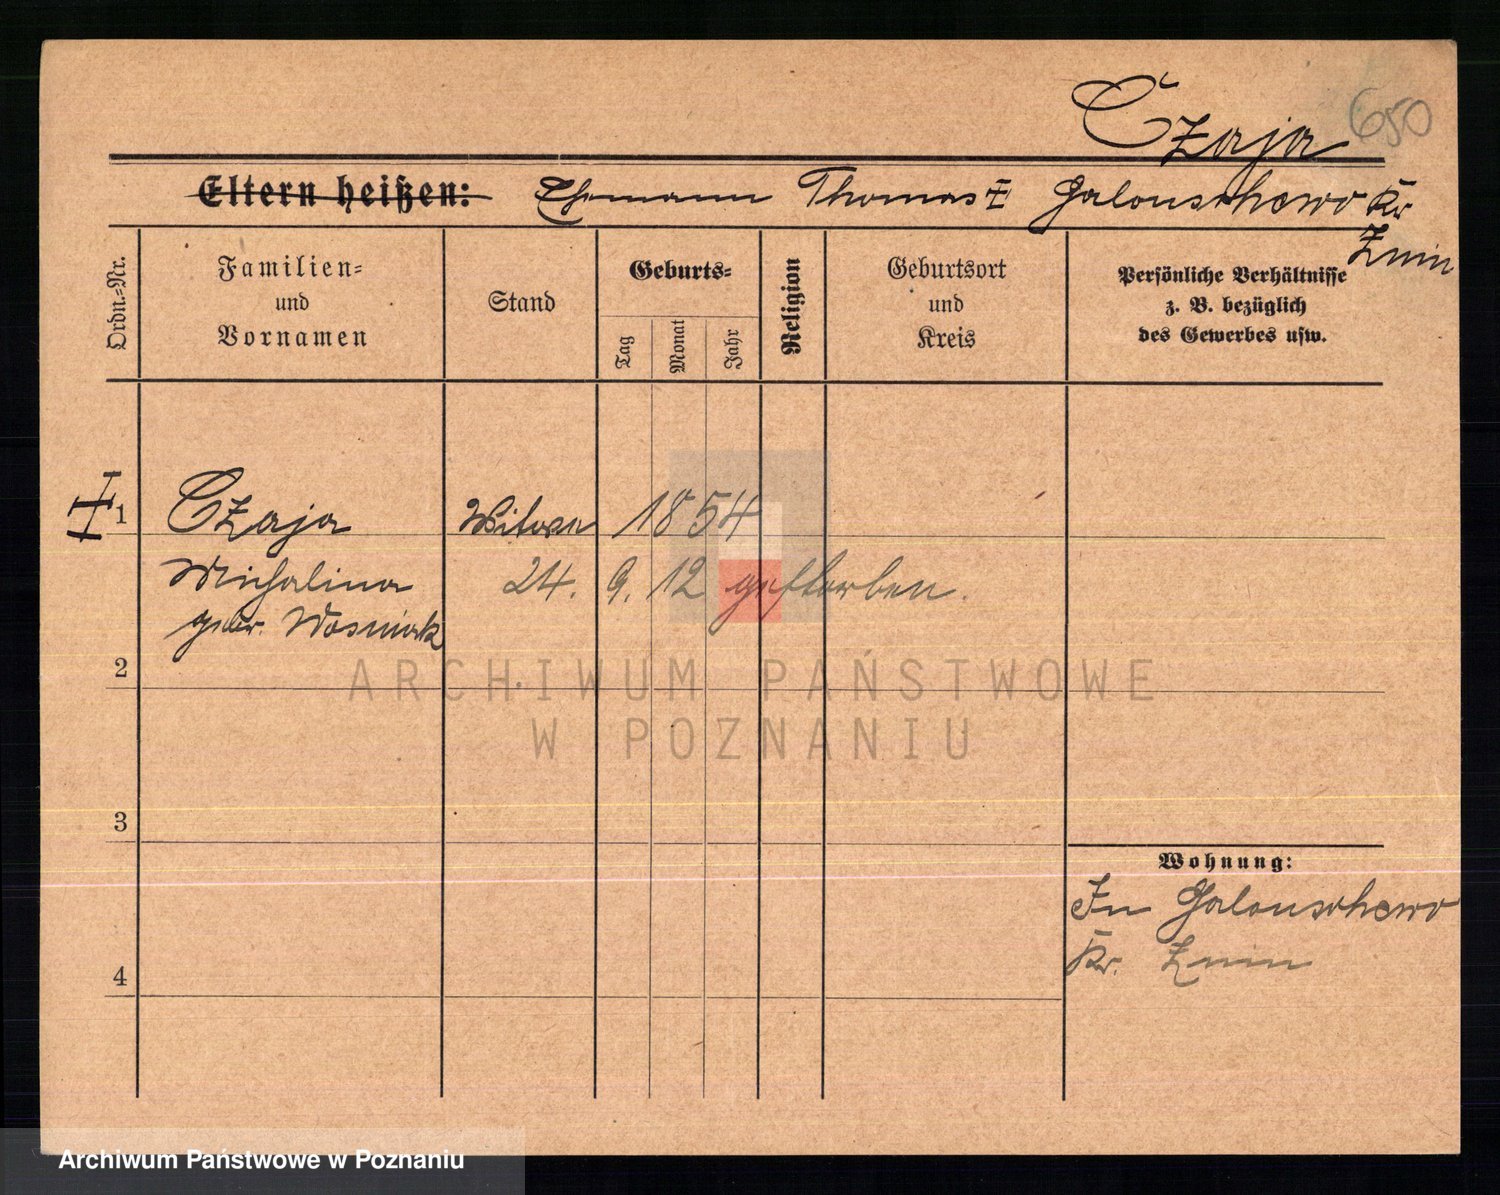 Czaja 650
Eltern heißen: Ehemann Thomas ‡ Galonschewo Kr
Znin
Ordn.-Nr.
Familien-
und
Vornamen
Stand
Geburts-
Tag
Monat
Jahr
Religion
Geburtsort
und
Kreis
Persönliche Verhältnisse
z. B. bezüglich
des Gewerbes usw.
1 Czaja Witwe 1854
Michalina 24. 9. 12 gestorben.
gebor. Wosniak
2
3
Wohnung:
In Galonschewo
Kr. Znin
4
ARCHIWUM PAŃSTWOWE
W POZNANIU
Archiwum Państwowe w Poznaniu